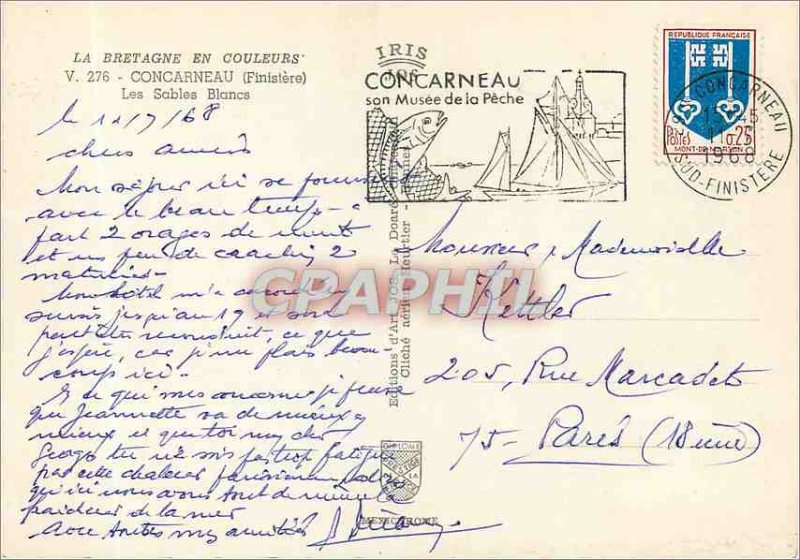 LA BRETAGNE EN COULEURS
V. 276 - CONCARNEAU (Finistère)
Les Sables Blancs
le 11/7/68
chers amis
Mon séjour ici se poursuit
avec le beau temps - à
part 2 orages de nuit
et un peu de crachin 2
matinées -
Mon hôtel m'a accordé un
sursis jusqu'au 19 et sera
peut être reconduit, ce que
j'espère, car je me plais beau-
coup ici -
En ce qui vous concerne je pense
que Jeannette va de mieux en
mieux et que toi mon cher
tu n'es pas trop fatigué
par cette chaleur parisienne
qu'ici nous avons tout de même la
fraîcheur de la mer
Avec toutes mes amitiés
IRIS
CONCARNEAU
son Musée de la Pêche
REPUBLIQUE FRANÇAISE
Postes 0,25
MONT-DE-MARSAN
CONCARNEAU
15 H 45
11
1968
SUD-FINISTÈRE
Editions d'Art JOS Le Doaré
Cliché aérien Heurtier -
DIPLOME
PRESTIGE
MEXICHROME
Monsieur, Mademoiselle
Kettler
205, Rue Marcadet
75 - Paris (18ème)
CPARAMA